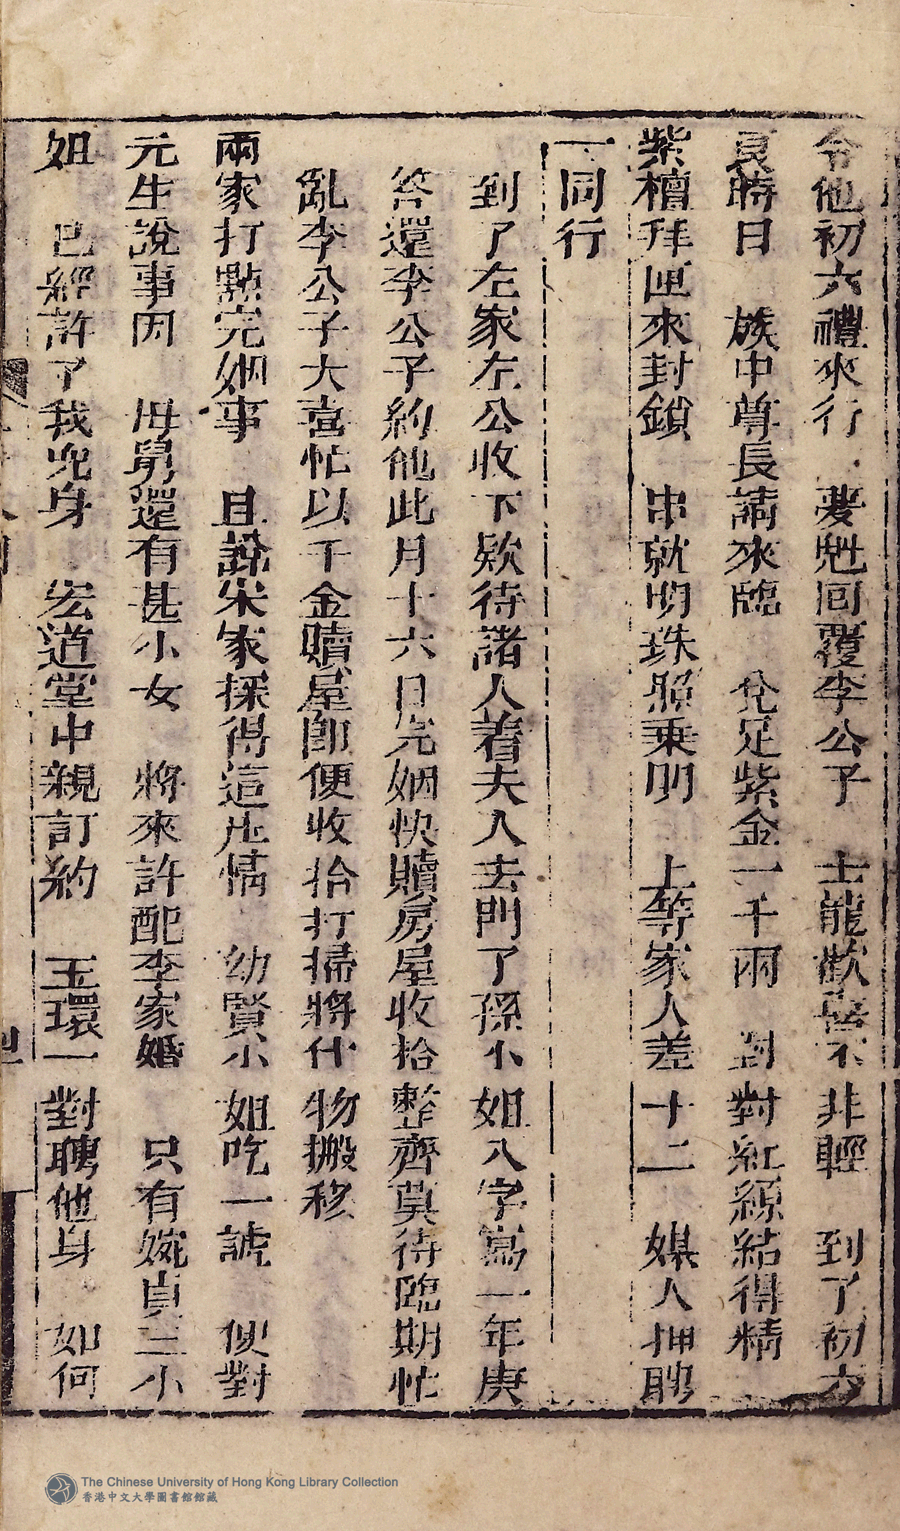 令他初六禮來行 夢熊回覆李公子 士龍歡喜不非輕 到了初六
良時日 族中尊長請來臨 兌足紫金一千兩 對對紅綢結得精
紫檀拜匣來封鎖 串就明珠照乘明 上等家人差十二 媒人押聘
一同行
到了左家左公收下欵待諸人着夫人去門了孫小姐八字寫一年庚
答還李公子約他此月十六日完姻快贖房屋收拾整齊莫待臨期忙
亂李公子大喜忙以千金贖屋即便收拾打掃將什物搬移
兩家打點完姻事 且說宋家探得這庄情 幼賢小姐吃一諕 便對
元生說事因 母舅還有甚小女 將來許配李家婚 只有婉貞三小
姐 已經許了我兜身 宏道堂中親訂約 玉環一對聘他身 如何
The Chinese University of Hong Kong Library Collection
香港中文大學圖書館館藏